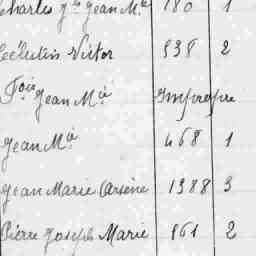 Charles Jh Jean Mie 180 1
Célestin Victor 538 2
Fois Jean Mie Impropre
Jean Mie 468 1
Jean Marie Arsène 1388 3
Pierre Joseph Marie 961 2